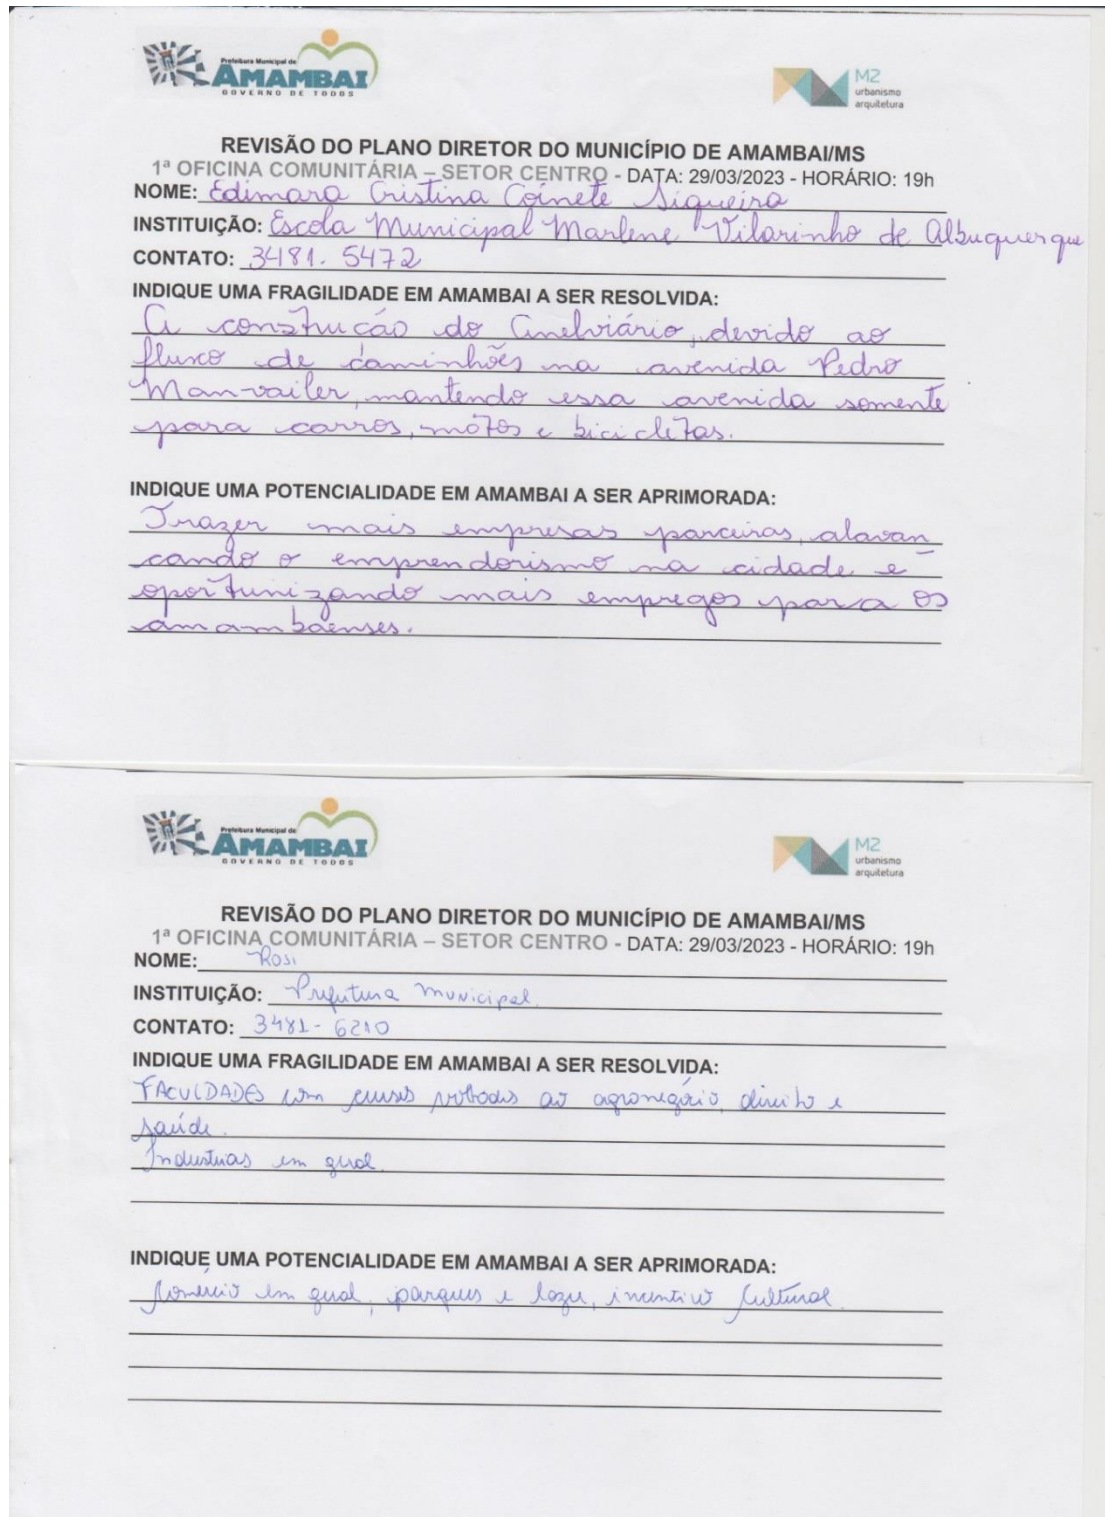 Prefeitura Municipal de
AMAMBAI
GOVERNO DE TODOS
M2
urbanismo
arquitetura
REVISÃO DO PLANO DIRETOR DO MUNICÍPIO DE AMAMBAI/MS
1ª OFICINA COMUNITÁRIA – SETOR CENTRO - DATA: 29/03/2023 - HORÁRIO: 19h
NOME: Edimara Cristina Coinete Siqueira
INSTITUIÇÃO: Escola Municipal Marlene Vilarinho de Albuquerque
CONTATO: 3481. 5472
INDIQUE UMA FRAGILIDADE EM AMAMBAI A SER RESOLVIDA:
A construção do Anelviário, devido ao
fluxo de caminhões na avenida Pedro
Manvailer, mantendo essa avenida somente
para carros, motos e bicicletas.
INDIQUE UMA POTENCIALIDADE EM AMAMBAI A SER APRIMORADA:
Trazer mais empresas parceiras, alavan
cando o emprendorismo na cidade e
oportunizando mais empregos para os
amambaenses.
Prefeitura Municipal de
AMAMBAI
GOVERNO DE TODOS
M2
urbanismo
arquitetura
REVISÃO DO PLANO DIRETOR DO MUNICÍPIO DE AMAMBAI/MS
1ª OFICINA COMUNITÁRIA – SETOR CENTRO - DATA: 29/03/2023 - HORÁRIO: 19h
NOME: Rosi
INSTITUIÇÃO: Prefeitura Municipal.
CONTATO: 3481- 6210
INDIQUE UMA FRAGILIDADE EM AMAMBAI A SER RESOLVIDA:
FACULDADES com cursos voltados ao agronegócio, direito e
saúde.
Industrias em geral.
INDIQUE UMA POTENCIALIDADE EM AMAMBAI A SER APRIMORADA:
Comércio em geral, parques e lazer, incentivo Cultural.